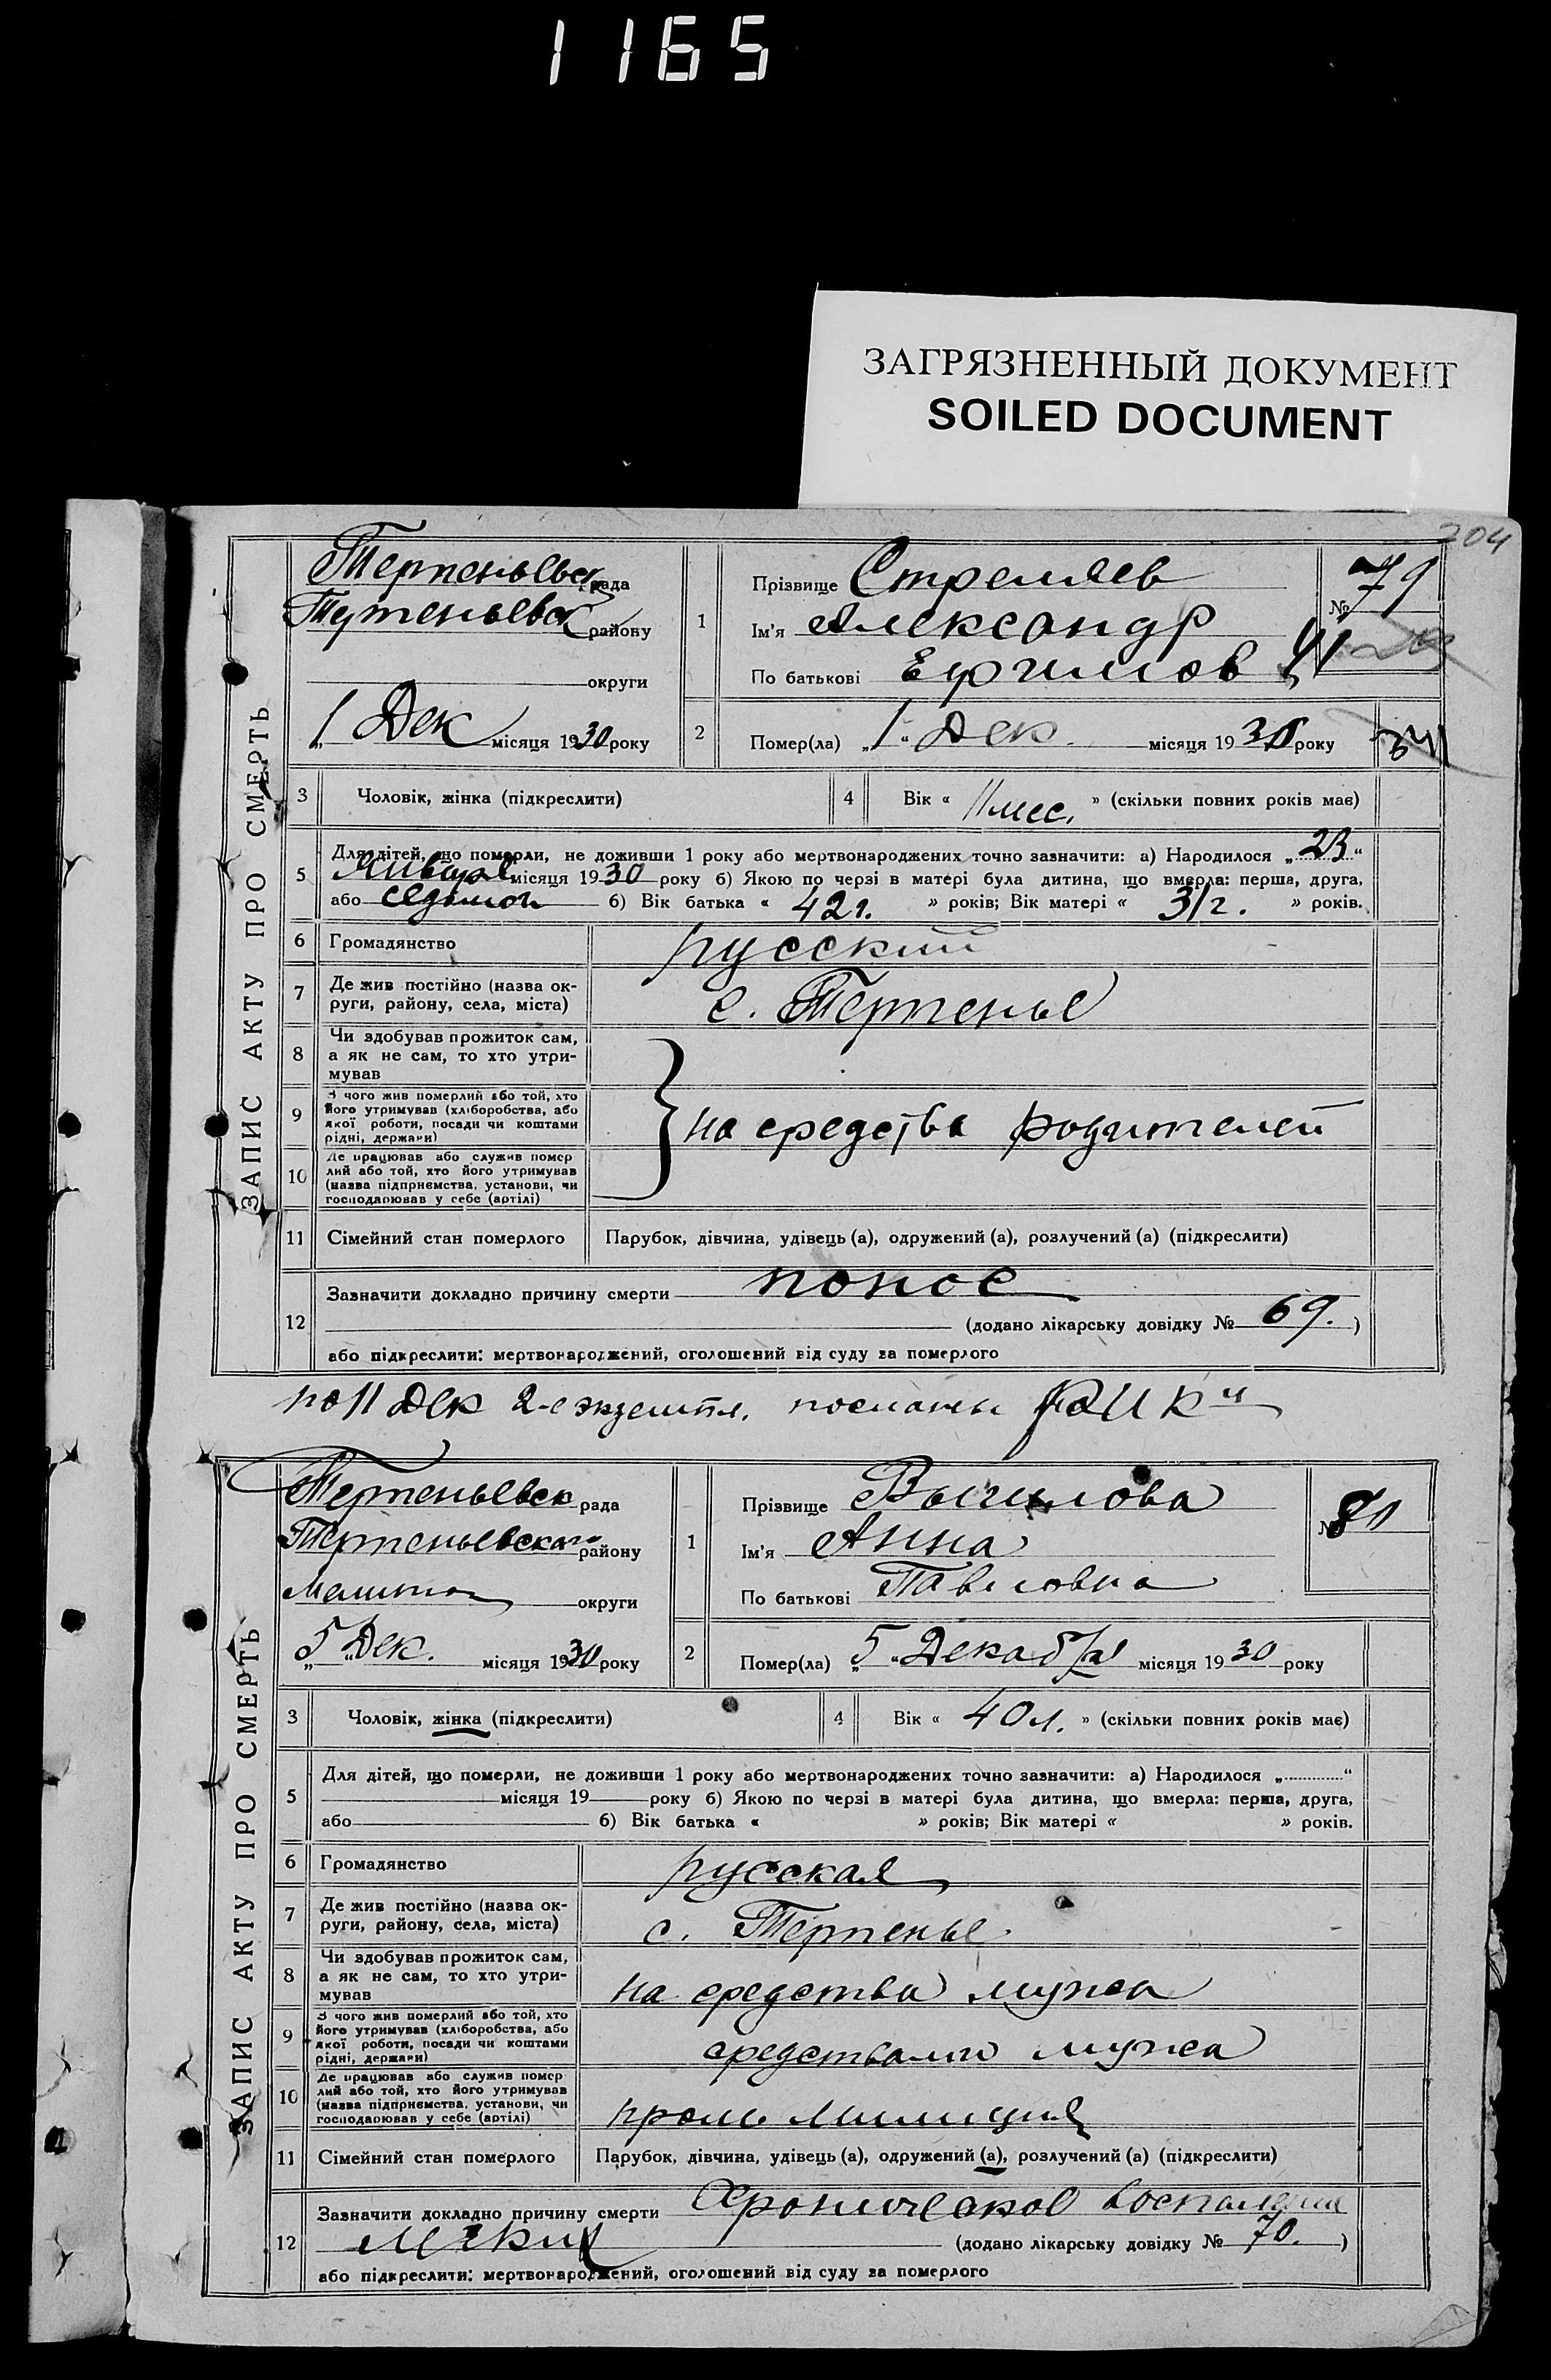 1165
ЗАГРЯЗНЕННЫЙ ДОКУМЕНТ
SOILED DOCUMENT
204
ЗАПИС АКТУ ПРО СМЕРТЬ
Терпеньевск рада
району
округи
„1 Дек місяця 1930 року
1
Прізвище Стреляев
Ім'я Александр
По батькові
№ 79
2
Помер(ла) „1“ Дек. місяця 1930 року
3 Чоловік, жінка (підкреслити)
4 Вік « 11 мес. » (скільки повних років має)
5 Для дітей, що померли, не доживши 1 року або мертвонароджених точно зазначити: а) Народилося „23“
Января місяця 1930 року б) Якою по черзі в матері була дитина, що вмерла: перша, друга,
або седьмой б) Вік батька « 42 г. » років; Вік матері « 31 г. » років.
6 Громадянство русский
7 Де жив постійно (назва ок-
руги, району, села, міста)
с. Терпенье
8 Чи здобував прожиток сам,
а як не сам, то хто утри-
мував
9 З чого жив померлий або той, хто
його утримував (хліборобства, або
якої роботи, посади чи коштами
рідні, держави)
на средства родителей
10 Де працював або служив помер
лий або той, хто його утримував
(назва підприємства, установи, чи
господарював у себе (артілі)
11 Сімейний стан померлого Парубок, дівчина, удівець (а), одружений (а), розлучений (а) (підкреслити)
12 Зазначити докладно причину смерти понос
(додано лікарську довідку № 69. )
або підкреслити: мертвонароджений, оголошений від суду за померлого
по 11 Дек 2-е экземпл. посланы
ЗАПИС АКТУ ПРО СМЕРТЬ
Терпеньевск рада
Терпеньевского району
округи
„5“ Дек. місяця 1930 року
1
Прізвище
Ім'я Анна
По батькові Павловна
№ 80
2
Помер(ла) „5“ Декабря місяця 1930 року
3 Чоловік, жінка (підкреслити)
4 Вік « 40 л. » (скільки повних років має)
5 Для дітей, що померли, не доживши 1 року або мертвонароджених точно зазначити: а) Народилося „ “
місяця 19 року б) Якою по черзі в матері була дитина, що вмерла: перша, друга,
або б) Вік батька « » років; Вік матері « » років.
6 Громадянство русская
7 Де жив постійно (назва ок-
руги, району, села, міста)
с. Терпенье
8 Чи здобував прожиток сам,
а як не сам, то хто утри-
мував
на средства мужа
9 З чого жив померлий або той, хто
його утримував (хліборобства, або
якої роботи, посади чи коштами
рідні, держави)
средствами мужа
10 Де працював або служив помер
лий або той, хто його утримував
(назва підприємства, установи, чи
господарював у себе (артілі)
милиция
11 Сімейний стан померлого Парубок, дівчина, удівець (а), одружений (а), розлучений (а) (підкреслити)
12 Зазначити докладно причину смерти Хроническое воспаление
легких (додано лікарську довідку № 70. )
або підкреслити: мертвонароджений, оголошений від суду за померлого